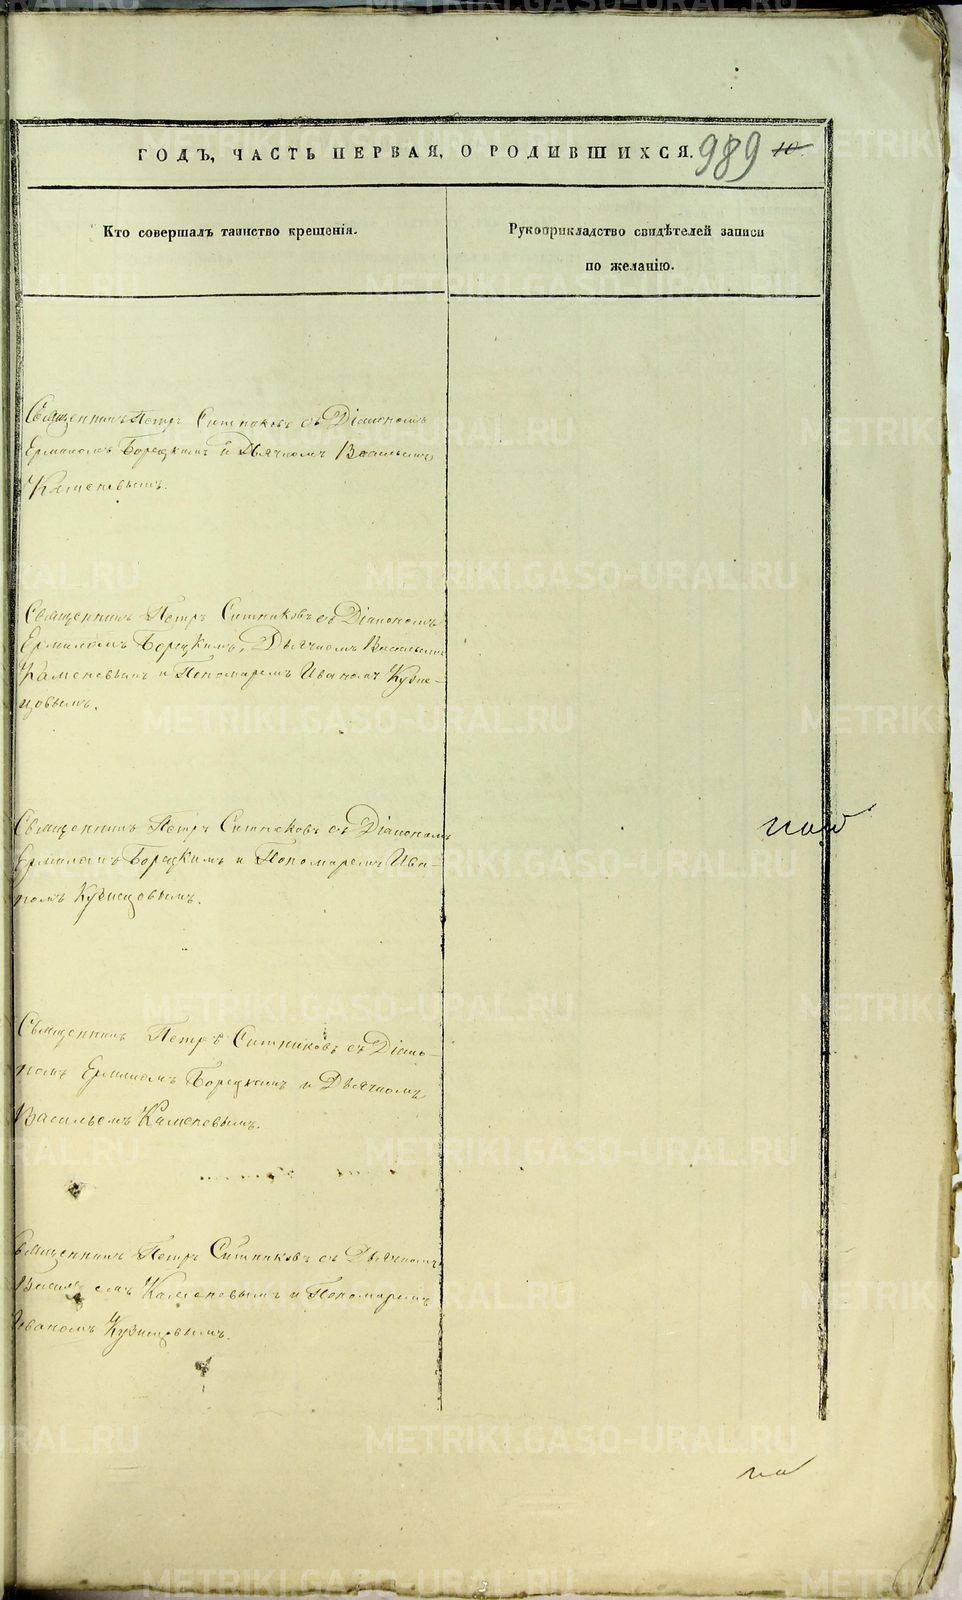 ГОДЪ, ЧАСТЬ ПЕРВАЯ, О РОДИВШИХСЯ. 989 10.
Кто совершалъ таинство крещенія.
Рукоприкладство свидѣтелей записи
по желанію.
Священникъ Петръ Ситниковъ съ Діакономъ
Ермиломъ Борецкимъ и Дьячкомъ Васильемъ
Каменевымъ.
Священникъ Петръ Ситниковъ съ Діакономъ
Ермиломъ Борецкимъ, Дьячкомъ Васильемъ
Каменевымъ и Пономаремъ Иваномъ Кузне-
цовымъ.
Священникъ Петръ Ситниковъ съ Діакономъ
Ермиломъ Борецкимъ и Пономаремъ Ива-
номъ Кузнецовымъ.
Священникъ Петръ Ситниковъ съ Діако-
номъ Ермиломъ Борецкимъ и Дьячкомъ
Васильемъ Каменевымъ.
Священникъ Петръ Ситниковъ съ Дьячкомъ
Васильемъ Каменевымъ и Пономаремъ
Иваномъ Кузнецовымъ.
METRIKI.GASO-URAL.RU